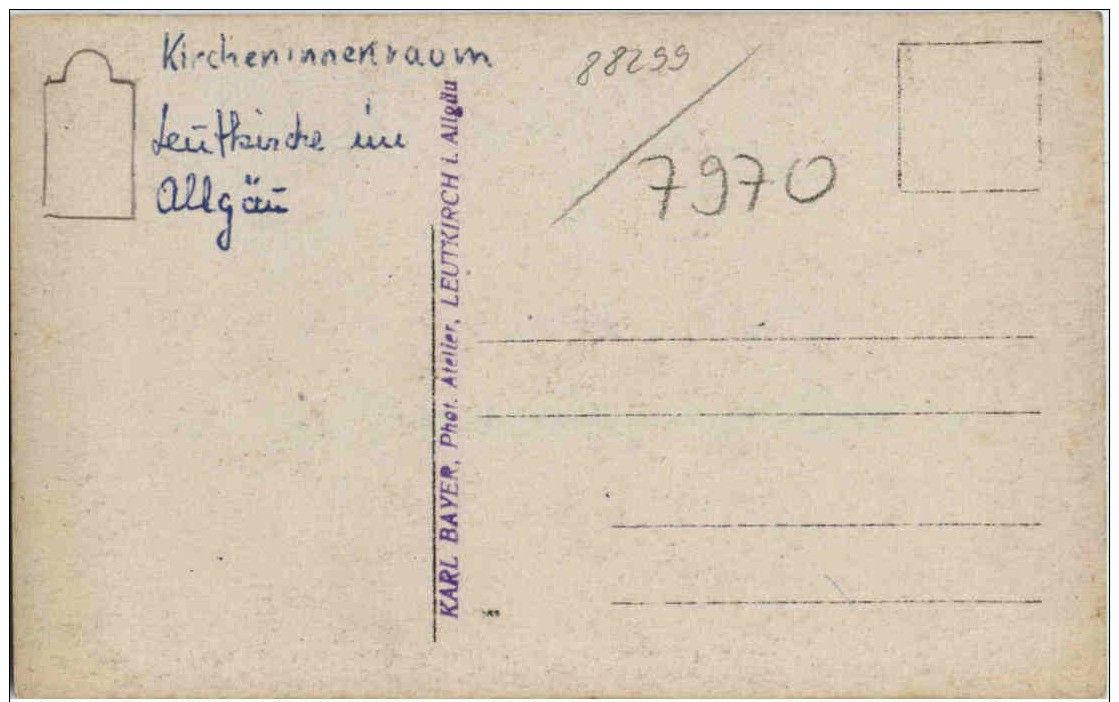 Kircheninnenraum
Leutkirche im
Allgäu
88299
7970
KARL BAYER, Phot. Atelier, LEUTKIRCH i. Allgäu